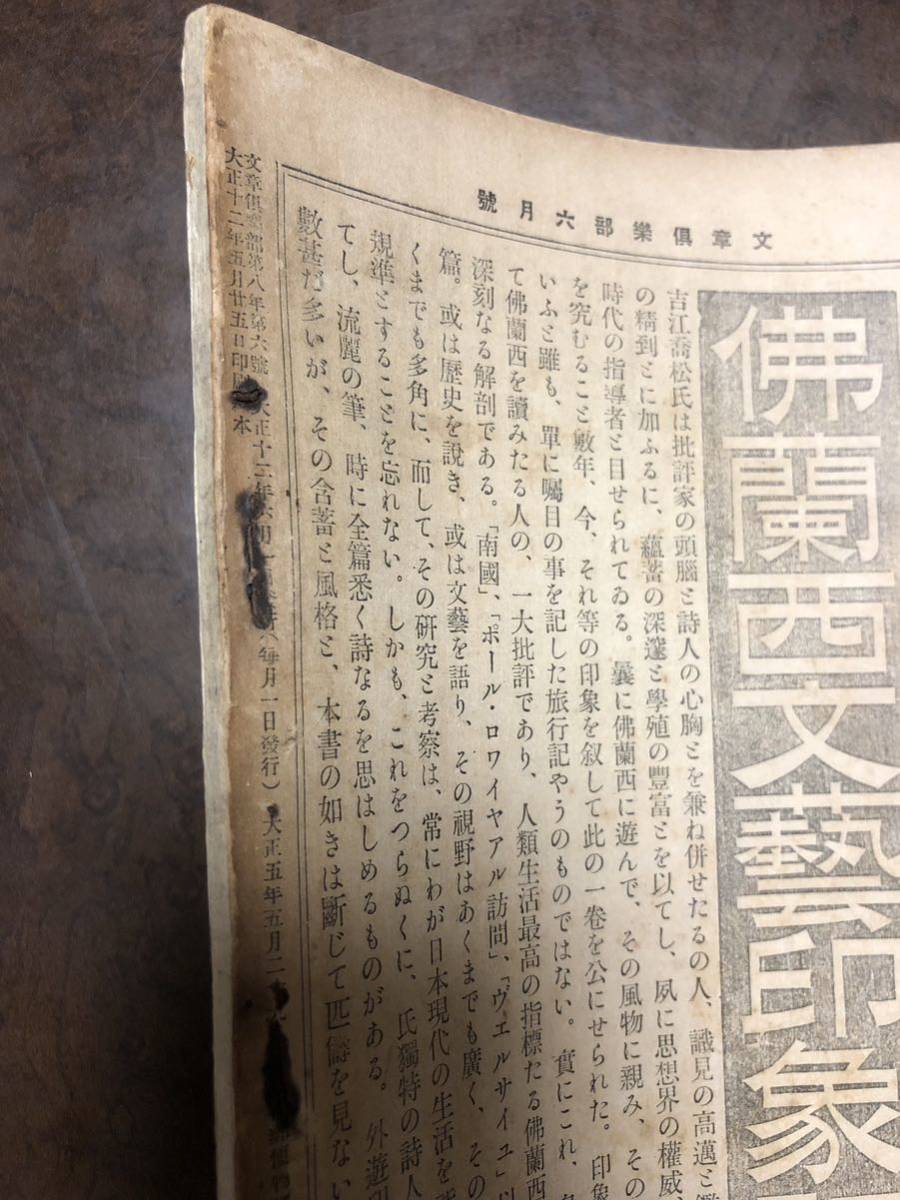 文章俱樂部六月號
佛蘭西文藝印象
吉江喬松氏は批評家の頭腦と詩人の心胸とを兼ね併せたるの人、識見の高邁と
の精到とに加ふるに、蘊蓄の深邃と學殖の豐富とを以てし、夙に思想界の權威、
時代の指導者と目せられてゐる。曩に佛蘭西に遊んで、その風物に親み、その
を究むること數年、今、それ等の印象を叙して此の一卷を公にせられた。印象
いふと雖も、單に囑目の事を記した旅行記やうのものではない。實にこれ、
て佛蘭西を讀みたる人の、一大批評であり、人類生活最高の指標たる佛蘭西
深刻なる解剖である。「南國」、「ポール・ロワイヤアル訪問」、「ヴェルサイユ」以
篇。或は歷史を說き、或は文藝を語り、その視野はあくまでも廣く、その
くまでも多角に、而して、その研究と考察は、常にわが日本現代の生活を
規準とすることを忘れない。しかも、これをつらぬくに、氏獨特の詩人
てし、流麗の筆、時に全篇悉く詩なるを思はしめるものがある。外遊印
數甚だ多いが、その含蓄と風格と、本書の如きは斷じて匹儔を見ない
文章俱樂部第八年第六號 大正十二年六月一日發行（每月一日發行）大正五年五月二
大正十二年五月廿五日印刷 本